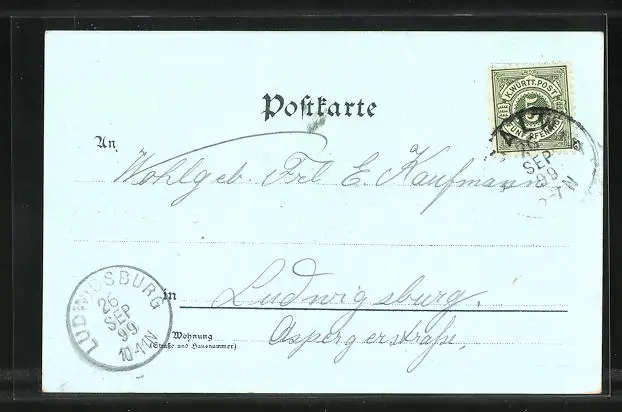 Postkarte
K. WÜRTT. POST
5
FÜNF PFENNIG
SEP
99
An
Wohlgeb. Frl E. Kaufmann
in Ludwigsburg.
Wohnung
(Straße und Hausnummer)
Aspergerstraße,
LUDWIGSBURG
26
SEP
99
10-11N